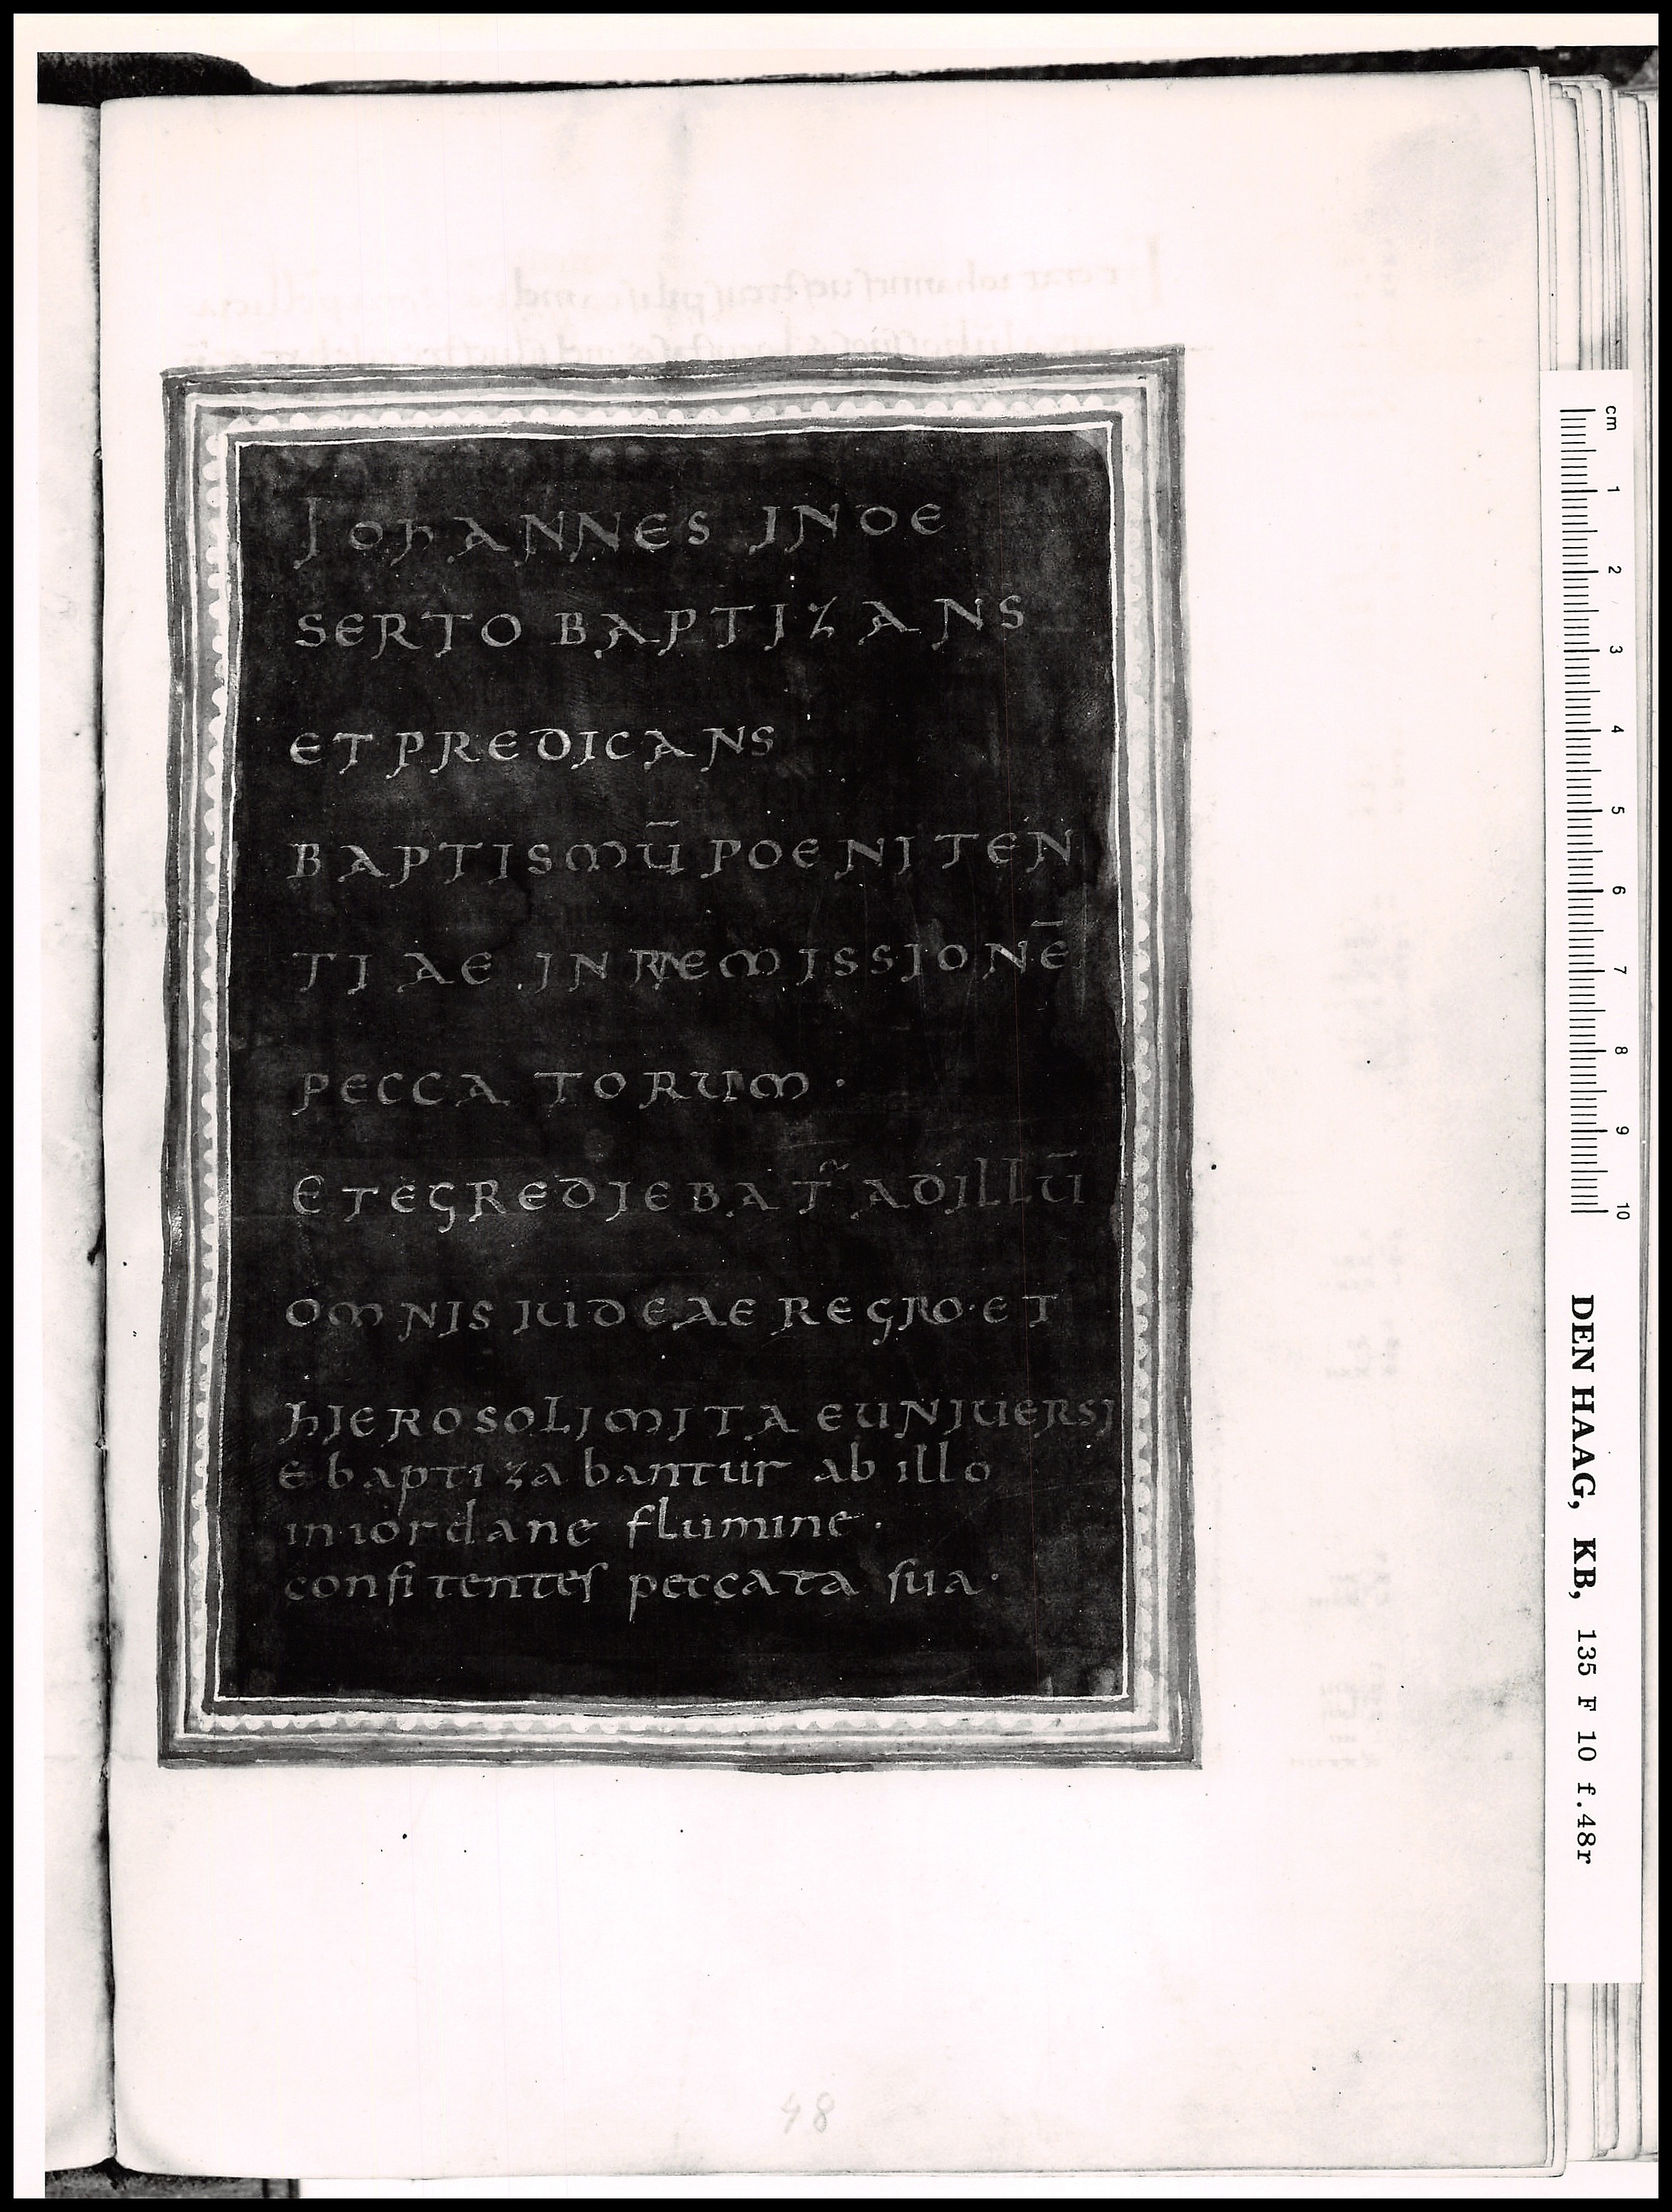 JOhANNES INDE
SERTO BAPTIZANS
ET PREDICANS
BAPTISMŪ POENITEN
TIAE IN REMISSIONĒ
PECCATORUM ·
ET EGREDIEBAT̃ AD ILLŪ
OMNIS IUDEAE REGIO· ET
hIEROSOLIMITAE UNIUERSI
E baptizabantur ab illo
in iordane flumine ·
confitentes peccata sua ·
48
cm 1 2 3 4 5 6 7 8 9 10
DEN HAAG, KB, 135 F 10 f.48r